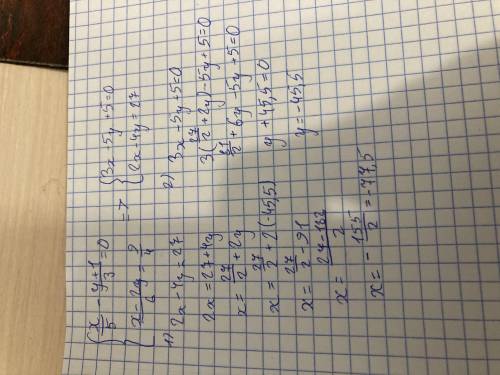 { x/5 - (y+1)/3 = 0 => { 3x-5y+5=0
{ (x-2y)/6 = 9/4 { 2x-4y=27
1) 2x-4y=27
2x=27+4y
x=27/2+2y
x=27/2+2(-45,5)
x=27/2-91
x=(27-182)/2
x=-155/2=-77,5
2) 3x-5y+5=0
3(27/2+2y)-5y+5=0
81/2+6y-5y+5=0
y+45,5=0
y=-45,5